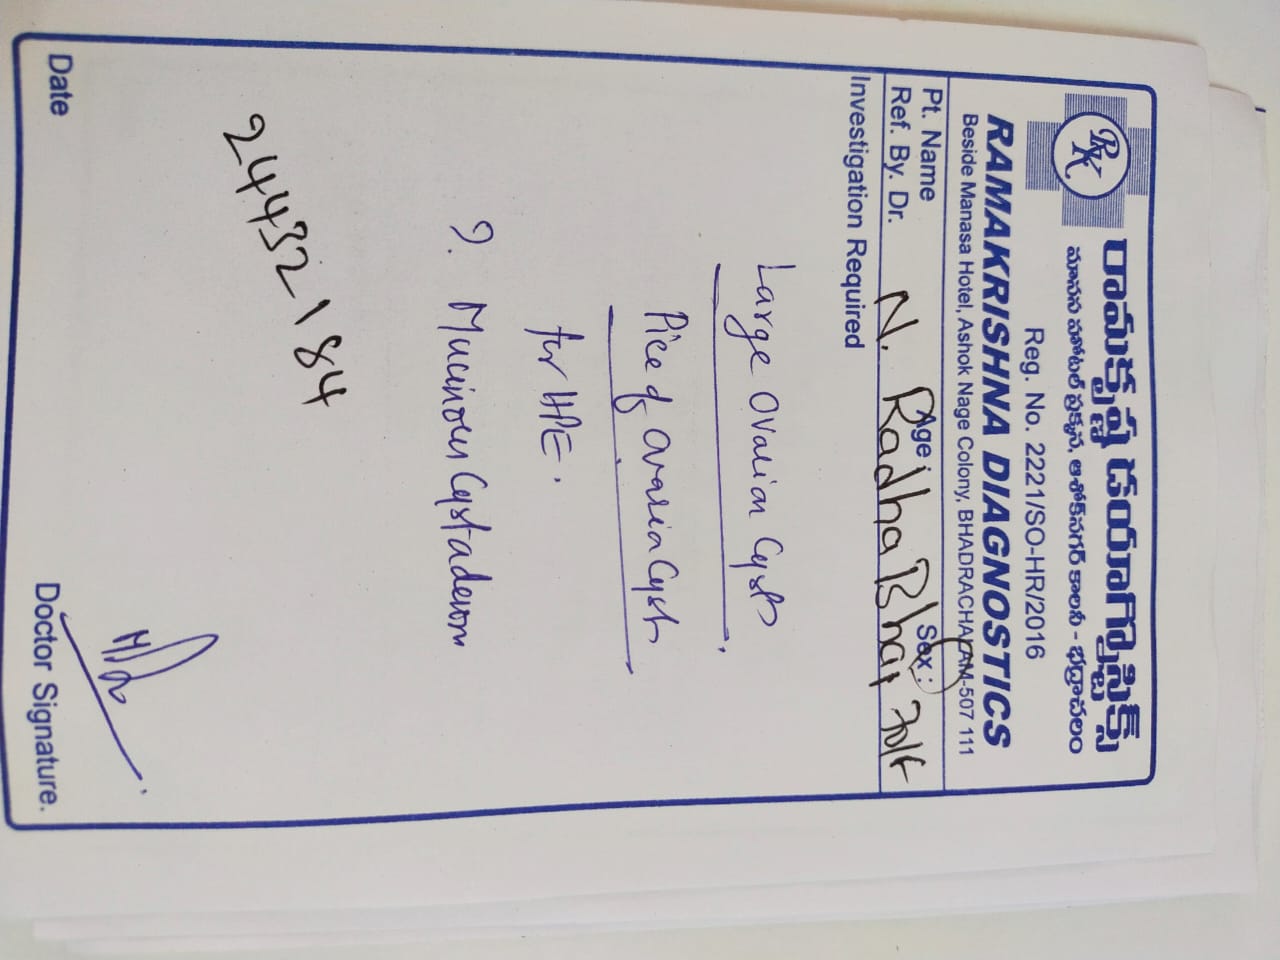 రామకృష్ణ డయాగ్నోస్టిక్స్
మానస హోటల్ ప్రక్కన, అశోక్‌నగర్ కాలని - భద్రాచలం
Reg. No. 2221/SO-HR/2016
RAMAKRISHNA DIAGNOSTICS
Beside Manasa Hotel, Ashok Nage Colony, BHADRACHALAM-507 111
Pt. Name Age : Sex :
Ref. By. Dr. N. Radha Bhai
Investigation Required
Large Ovarian Cyst
Pice of ovaria Cyst
for HPE.
?. Mucinous Cystadenom
24432184
Date Doctor Signature.